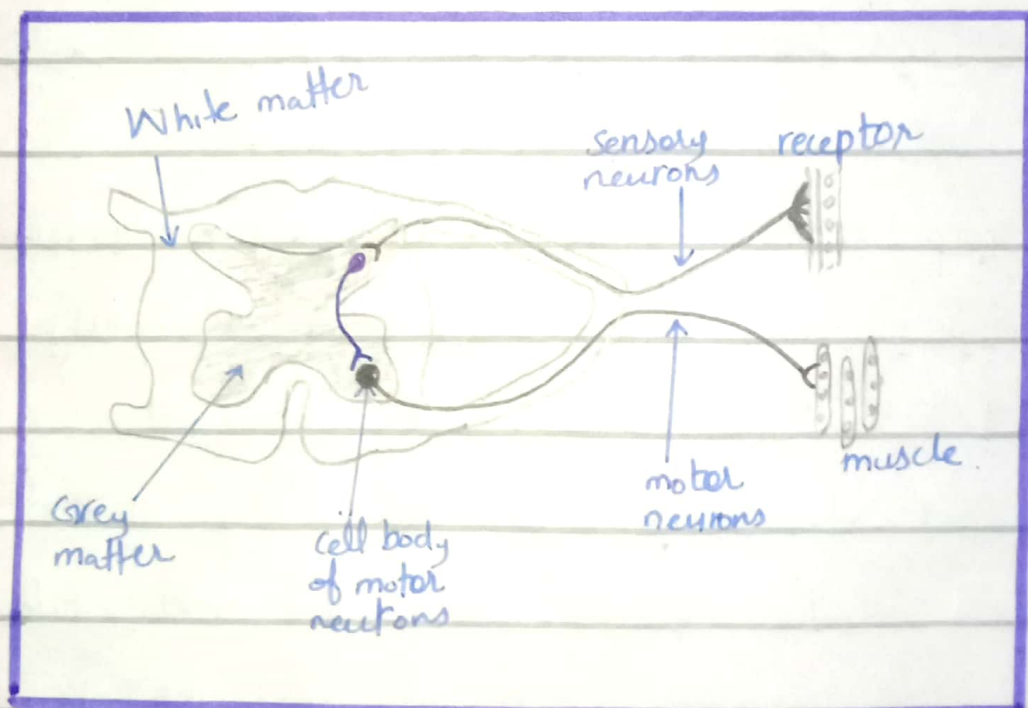 White matter
sensory
neurons
receptor
muscle.
motor
neurons
Grey
matter
cell body
of motor
neurons